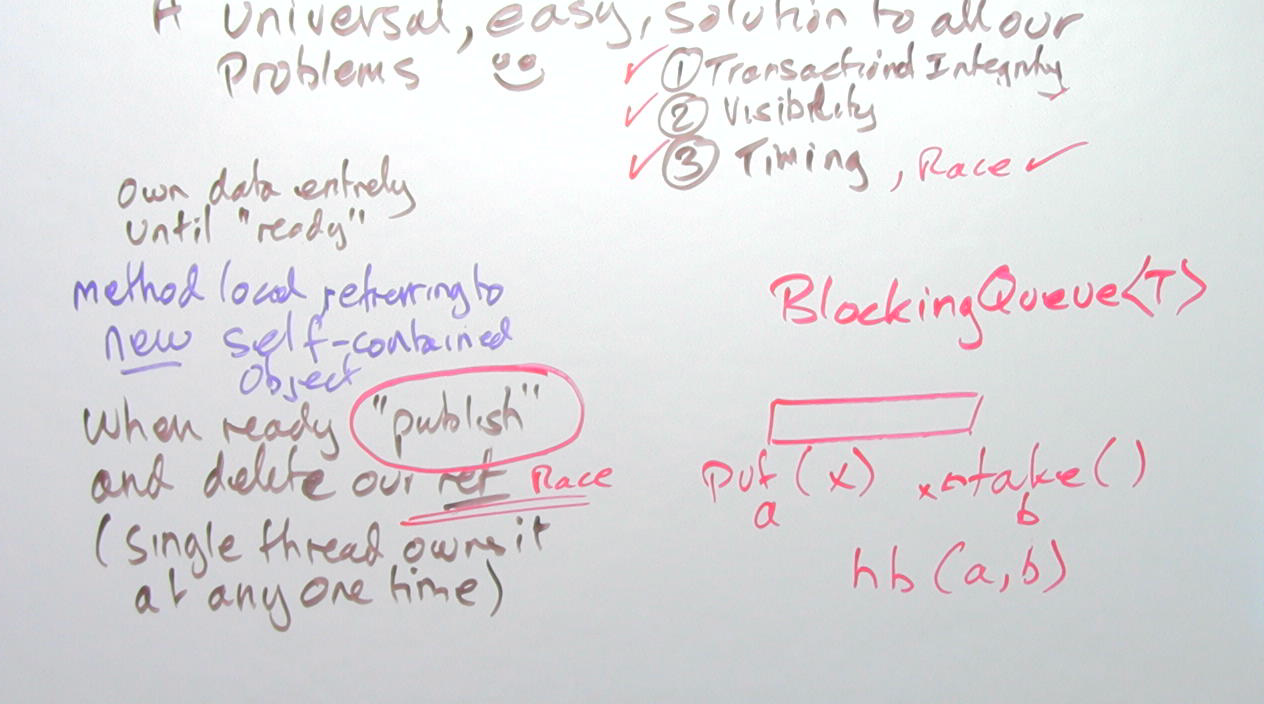 A universal, easy, solution to all our
problems
✓ ① Transactional Integrity
✓ ② Visibility
✓ ③ Timing, Race ✓
own data entirely
until "ready"
method local, referring to
new self-contained
object
when ready "publish"
and delete our ref Race
(single thread owns it
at any one time)
BlockingQueue<T>
put(x) x←take()
a b
hb(a,b)